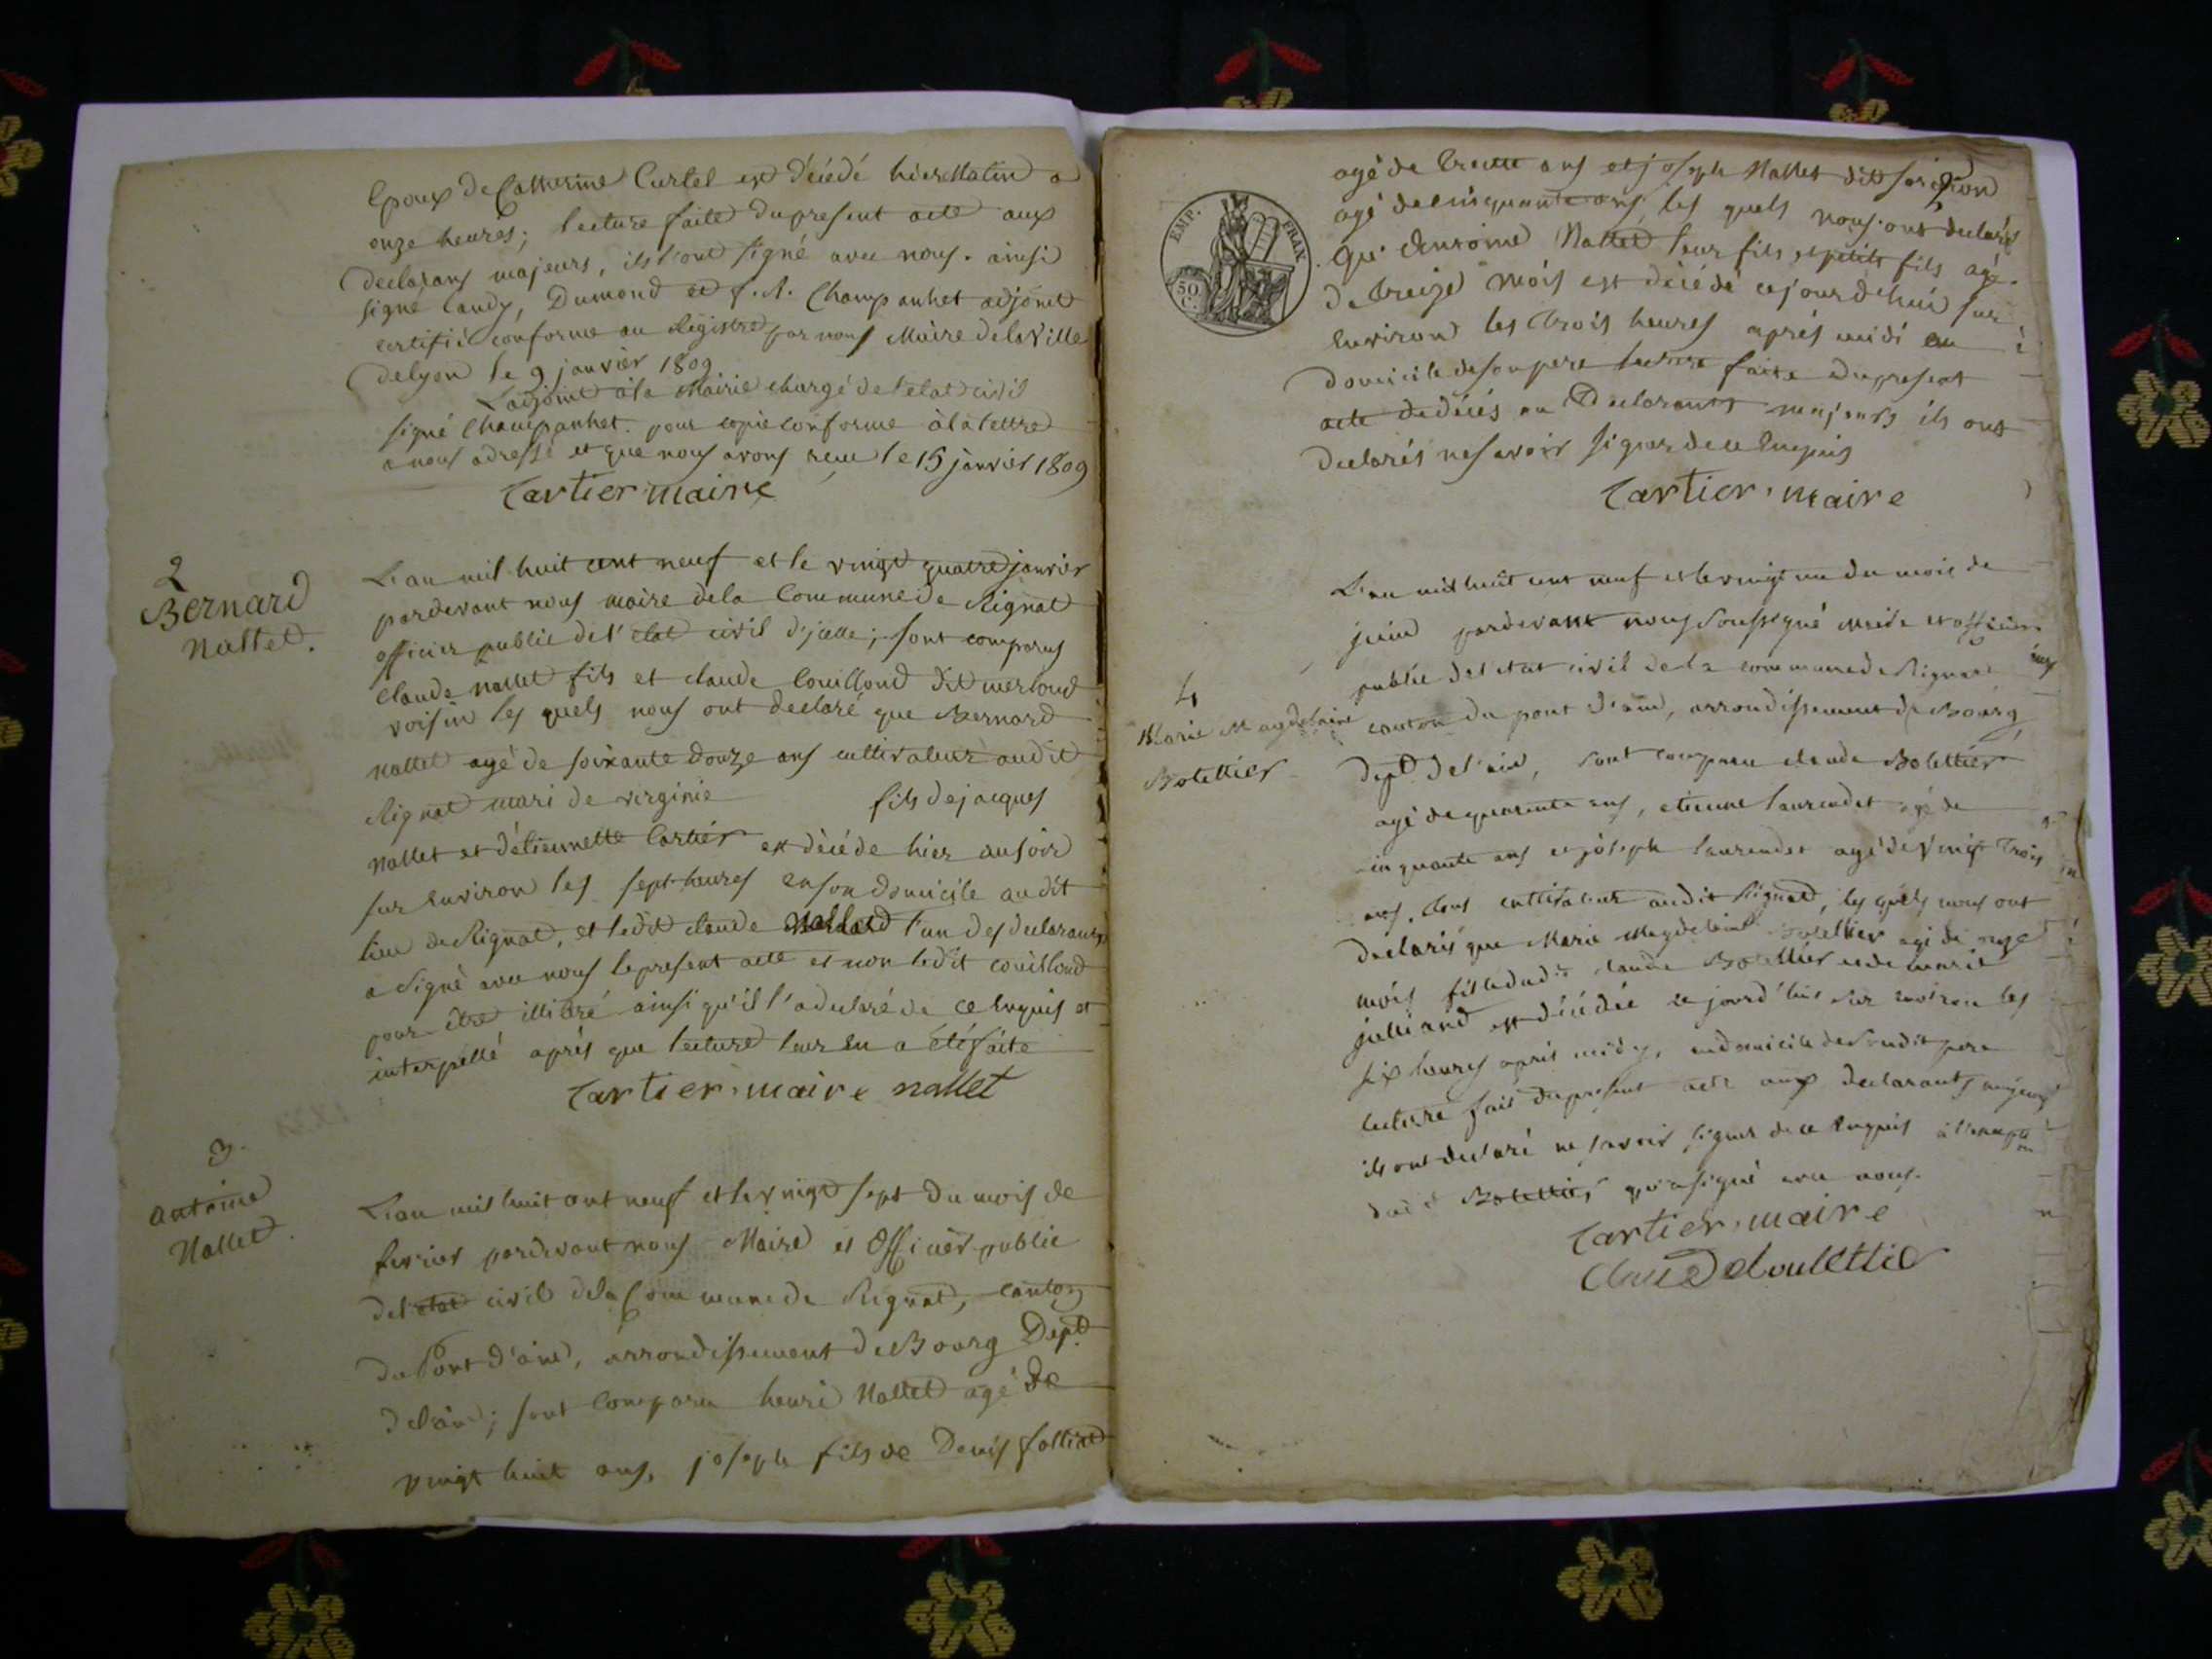 Epoux de Catherine Curtel est décédé hier Matin a
onze heures; lecture faite du present acte aux
declarans majeurs, ils l'ont signé avec nous. ainsi
signé Candy, Dumond et f. A. Champanhet adjoint
certifié conforme au Registre par nous Maire de la Ville
de lyon le 9 janvier 1809
L'adjoint à la Mairie chargé de l'etat civil
signé Champanhet. pour copie conforme à la lettre
a nous adressé et que nous avons reçue le 15 janvier 1809
Cartier maire
2
Bernard
Nallet.
L'an mil huit cent neuf et le vingt quatre janvier
pardevant nous maire dela Commune de Rignat
officier public de l'etat civil d'icelle; sont comparus
Claude nallet fils et claude Couilloud dit merloud
voisin les quels nous ont declaré que Bernard
nallet agé de soixante douze ans cultivateur audit
Rignat mari de virginie fils de jacques
nallet et d'étiennette Cartier est décédé hier au soir
sur environ les sept heures en son domicile au dit
lieu de Rignat, et ledit claude l'un des declarants
a signé avec nous le present acte et non ledit couilloud
pour être illitéré ainsi qu'il l'a declaré de ce Enquis et
interpellé après que lecture leur en a été faite
Cartier maire nallet
3.
antoine
Nallet.
L'an mil huit cent neuf et le vingt sept du mois de
fevrier pardevant nous Maire et Officier public
de l'etat civil dela Commune de Rignat, canton
du Pont d'ain, arrondissement de Bourg Dept
de l'ain; sont comparu henri Nallet agé de
vingt huit ans, joseph fils de Denis folliet
EMP. FRAN.
50
C.
agé de trente ans et joseph Nallet dit
agé de cinquante ans, les quels nous ont declaré
qu'Antoine Nallet leur fils, et petit fils agé
de treize mois est décédé cejourd'hui sur
Environ les trois heures après midi au
domicile de son pere lecture faite du present
acte de décès au Declarants majeurs ils ont
declarés ne savoir signer de ce Enquis
Cartier maire
4
Marie Magdelaine
Bolettier
L'an mil huit cent neuf et le vingt un du mois de
juin pardevant nous soussigné maire et officier
public de l'etat civil de la commune de Rignat
canton du pont d'ain, arrondissement de Bourg
dept. de l'ain, sont comparu claude Bolettier
agé de quarante ans, etienne laurendet agé de
cinquante ans et joseph laurendet agé de vingt trois
ans, tous cultivateur audit Rignat, les quels nous ont
declarés que Marie Magdelaine Bolettier agé de onze
mois fille dudit claude Bolettier et de marie
julliard est décédée ce jourd'hui sur environ les
six heures après midy, au domicile de sondit pere
lecture fait du present acte aux declarants majeurs
ils ont declaré ne savoir signer de ce Enquis à l'exception
dudit Bolettier qui a signé avec nous.
Cartier maire